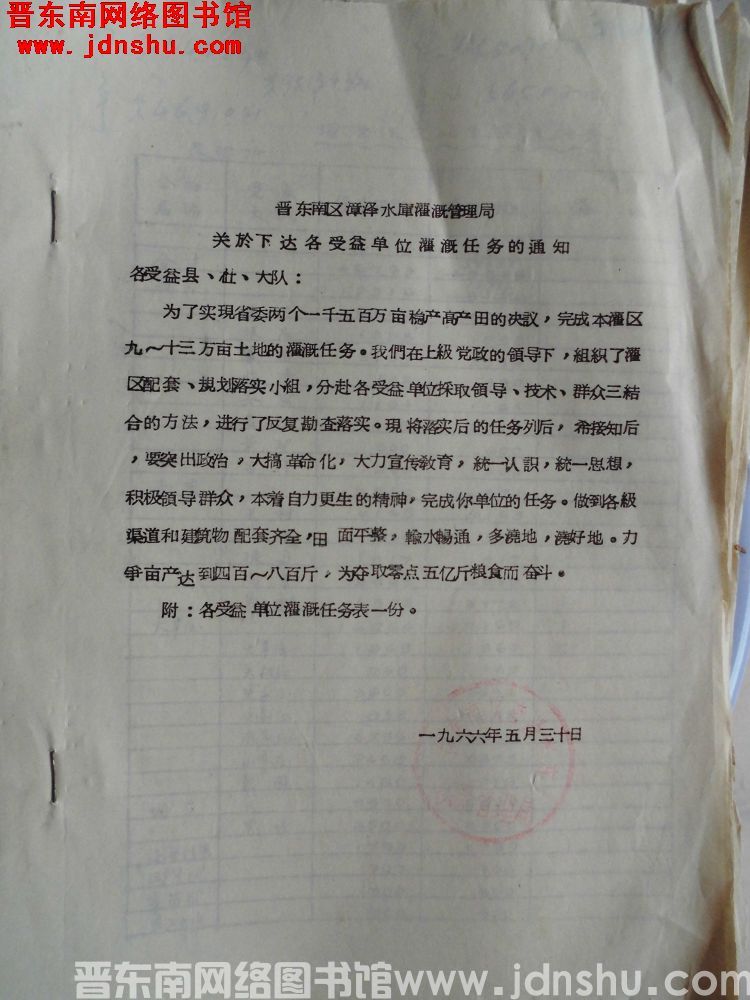 晋东南网络图书馆
www.jdnshu.com
晋东南区漳泽水庫灌溉管理局
关於下达各受益单位灌溉任务的通知
各受益县、社、大队：
为了实現省委两个一千五百万亩稳产高产田的决議，完成本灌区
九～十三万亩土地的灌溉任务。我們在上級党政的領导下，組织了灌
区配套、規划落实小組，分赴各受益单位採取領导、技术、群众三結
合的方法，进行了反复勘查落实。現将落实后的任务列后，希接知后
，要突出政治，大搞革命化，大力宣传教育，統一认識，統一思想，
积极領导群众，本着自力更生的精神，完成你单位的任务。做到各級
渠道和建筑物配套齐全，田面平整，輸水暢通，多澆地，澆好地。力
爭亩产达到四百～八百斤，为夺取零点五亿斤粮食而奋斗。
附：各受益单位灌溉任务表一份。
一九六六年五月三十日
晋东南网络图书馆www.jdnshu.com